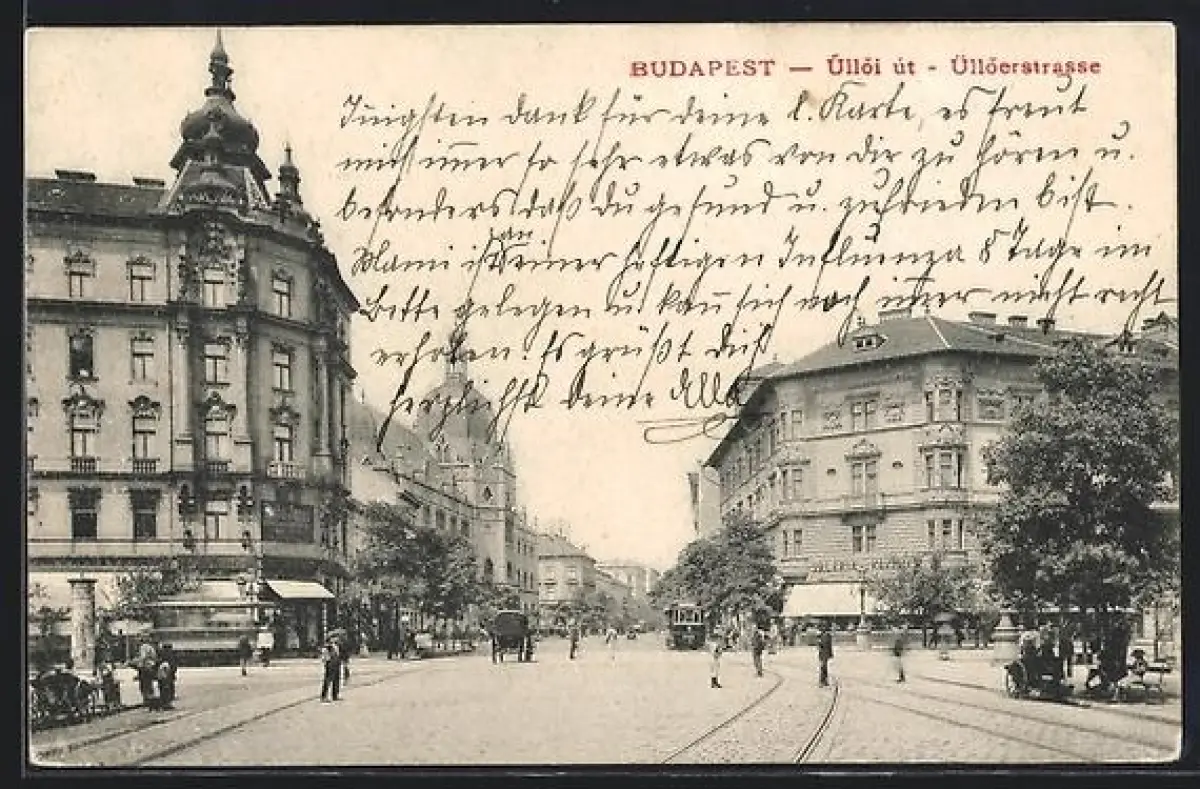 BUDAPEST — Űllői út - Üllőerstrasse
Innigsten Dank für deine l. Karte, es freut
mich immer so sehr etwas von dir zu hören u.
besonders daß du gesund u. zufrieden bist.
an
Mami ist einer heftigen Influenza 8 Tage im
Bette gelegen u. kann sich noch immer nicht recht
erholen. Es grüßt dich
herzlichst deine Ella